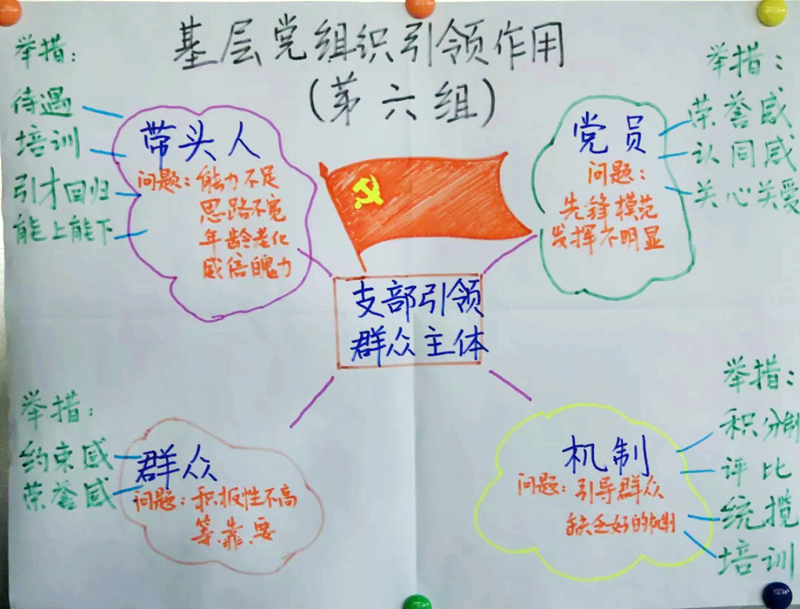 基层党组织引领作用
(第六组)
举措:
待遇
培训
引才回归
能上能下
带头人
问题:能力不足
思路不宽
年龄老化
威信魄力
党员
问题:
先锋模范
发挥不明显
举措:
荣誉感
认同感
关心关爱
支部引领
群众主体
举措:
约束感
荣誉感
群众
问题:积极性不高
等.靠.要
机制
问题:引导群众
缺乏好的机制
举措:
积分制
评比
统揽
培训